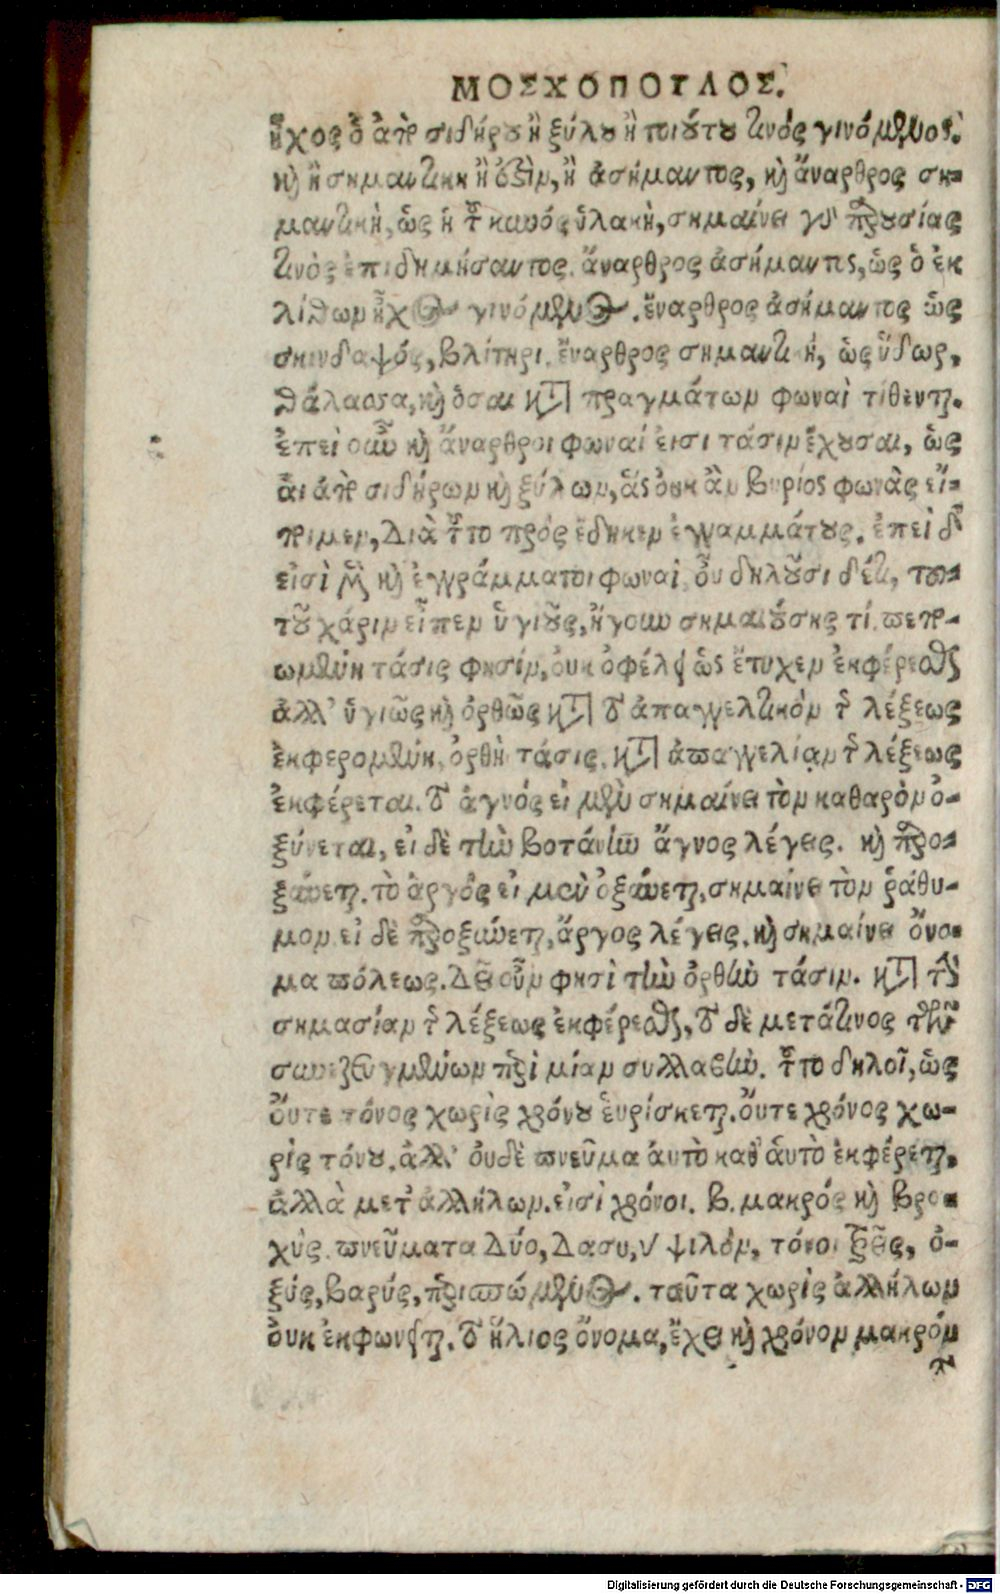 ΜΟΣΧΟΠΟΥΛΟΣ.
ἦχος ὁ ἀπὸ σιδήρου ἢ ξύλου ἢ τοιούτου τινός γινόμενος.
καὶ ἢ σημαντικὴ ἢ ἀσήμαντος, καὶ ἄναρθρος ση-
μαντικὴ, ὡς ἡ τοῦ κυνός ὑλακὴ, σημαίνει γὰρ παρουσίας
τινὸς ἐπιδημήσαντος. ἄναρθρος ἀσήμαντος, ὡς ὁ ἐκ
λίθων ἦχος γινόμενος. ἔναρθρος ἀσήμαντος ὡς
σκινδαψός, βλίτηρι. ἔναρθρος σημαντικὴ, ὡς ὕδωρ,
θάλασσα, καὶ ὅσαι κατὰ πραγμάτων φωναὶ τίθενται.
ἐπεὶ οὖν καὶ ἄναρθροι φωναί εἰσι τάσιν ἔχουσαι, ὡς
αἱ ἀπὸ σιδήρων καὶ ξύλων, ἃς οὐκ ἂν κυρίος φωνὰς εἴ-
ποιμεν, Διὰ τοῦτο πρός ἔθηκεν ἐγγραμμάτους. ἐπεὶ δ
εἰσὶ μὲν καὶ ἐγγράμματοι φωναὶ, οὐ δηλοῦσι δέ τι, τού-
του χάριν εἶπεν ὑγιοῦς, ἤγουν σημαινούσης τί.
τάσις φησίν, οὐκ ὀφείλει ὡς ἔτυχεν ἐκφέρεσθαι
ἀλλ' ὑγιῶς καὶ ὀρθῶς κατὰ τὸ ἀπαγγελτικὸν τῆς λέξεως
ἐκφερομένη, ὀρθὴ τάσις. κατὰ ἀπαγγελίαν τῆς λέξεως
ἐκφέρεται. τὸ ἁγνός εἰ μὲν σημαίνει τὸν καθαρὸν ὀ-
ξύνεται, εἰ δὲ τὴν βοτάνην ἄγνος λέγεις. καὶ παρο-
ξύνεται. τὸ ἀργὸς εἰ μὲν ὀξύνεται, σημαίνει τὸν ῥάθυ-
μον εἰ δὲ παροξύνεται, ἄργος λέγεις, καὶ σημαίνει ὄνο-
μα πόλεως. Δεῖ οὖν φησὶ τὴν ὀρθὴν τάσιν. κατὰ τὴν
σημασίαν τῆς λέξεως ἐκφέρεσθαι, τὸ δὲ μετά τινος τῶν
συνεζευγμένων περὶ μίαν συλλαβὴν. τοῦτο δηλοῖ, ὡς
οὔτε τόνος χωρὶς χρόνου εὑρίσκεται. οὔτε χρόνος χω-
ρὶς τόνου. ἀλλ' οὐδὲ πνεῦμα αὐτὸ καθ' αὑτὸ ἐκφέρεται,
ἀλλὰ μετ' ἀλλήλων. εἰσὶ χρόνοι. β. μακρός καὶ βρα-
χὺς. πνεύματα Δύο, Δασὺ, ψιλόν, τόνοι τρεῖς, ὀ-
ξύς, βαρύς, περισπώμενος. ταῦτα χωρὶς ἀλλήλων
οὐκ ἐκφωνεῖται. τὸ ἥλιος ὄνομα, ἔχει καὶ χρόνον μακρόν
Digitalisierung gefördert durch die Deutsche Forschungsgemeinschaft - DFG